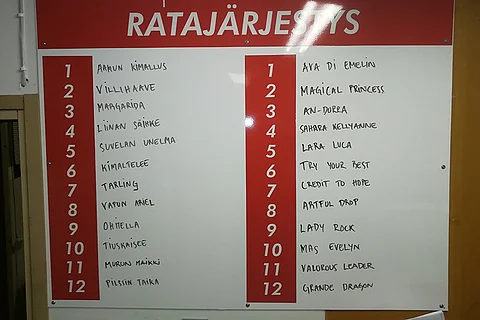 RATAJÄRJESTYS
1 AAMUN KIMALLUS
2 VILLIHAAVE
3 MARGARIDA
4 LIINAN SÄIHKE
5 SUVELAN UNELMA
6 KIMALTELEE
7 TARLING
8 VAPUN AMEL
9 OHITELLA
10 TIUSKAISEE
11 MURUN MAIKKI
12 PILSSIN TAIKA
1 AVA DI EMELIN
2 MAGICAL PRINCESS
3 AN-DORRA
4 SAHARA KELLYANNE
5 LARA LUCA
6 TRY YOUR BEST
7 CREDIT TO HOPE
8 ARTFUL DROP
9 LADY ROCK
10 MAS EVELYN
11 VALOROUS LEADER
12 GRANDE DRAGON